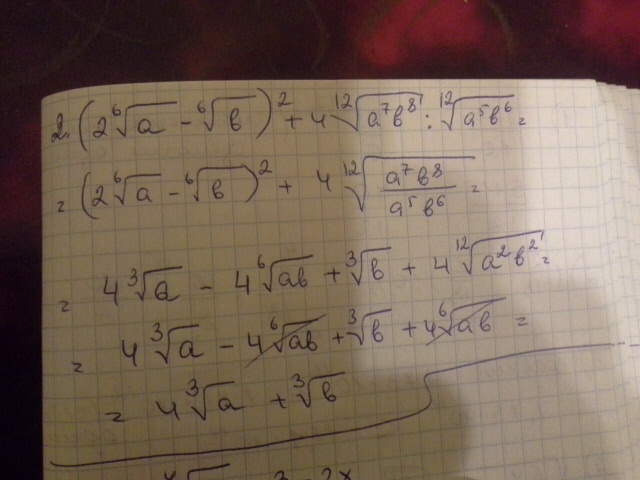 2. (2⁶√a - ⁶√b)² + 4 ¹²√a⁷b⁸ : ¹²√a⁵b⁶ =
= (2⁶√a - ⁶√b)² + 4 ¹²√(a⁷b⁸/a⁵b⁶) =
= 4 ³√a - 4 ⁶√ab + ³√b + 4 ¹²√a²b² =
= 4 ³√a - 4 ⁶√ab + ³√b + 4 ⁶√ab =
= 4 ³√a + ³√b